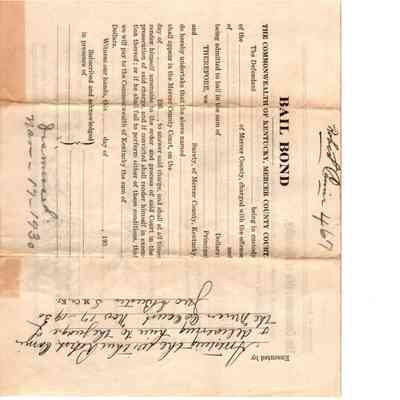 BAIL BOND
THE COMMONWEALTH OF KENTUCKY, MERCER COUNTY COURT
The Defendant being in custody
of the of Mercer County, charged with the offense
of and
being admitted to bail in the sum of Dollars
THEREFORE, we Principal
and Surety, of Mercer County, Kentucky,
do hereby undertake that the above named
shall appear in the Mercer County Court, on the
day of 193 to answer said charge, and shall at all times
render himself amenable to the order and process of said Court in the
prosecution of said charge, and if convicted shall render himself in execu-
tion thereof; or if he shall fail to perform either of these conditions, that
we will pay to the Commonwealth of Kentucky the sum of
Dollars.
Witness our hands, this day of , 193
Subscribed and acknowledged
in presence of
Nov - 17 - 1930
Executed by
the within
& delivering him to the judge of
the Mercer Co Court Nov 17 - 1930
S.M.C.Ky.